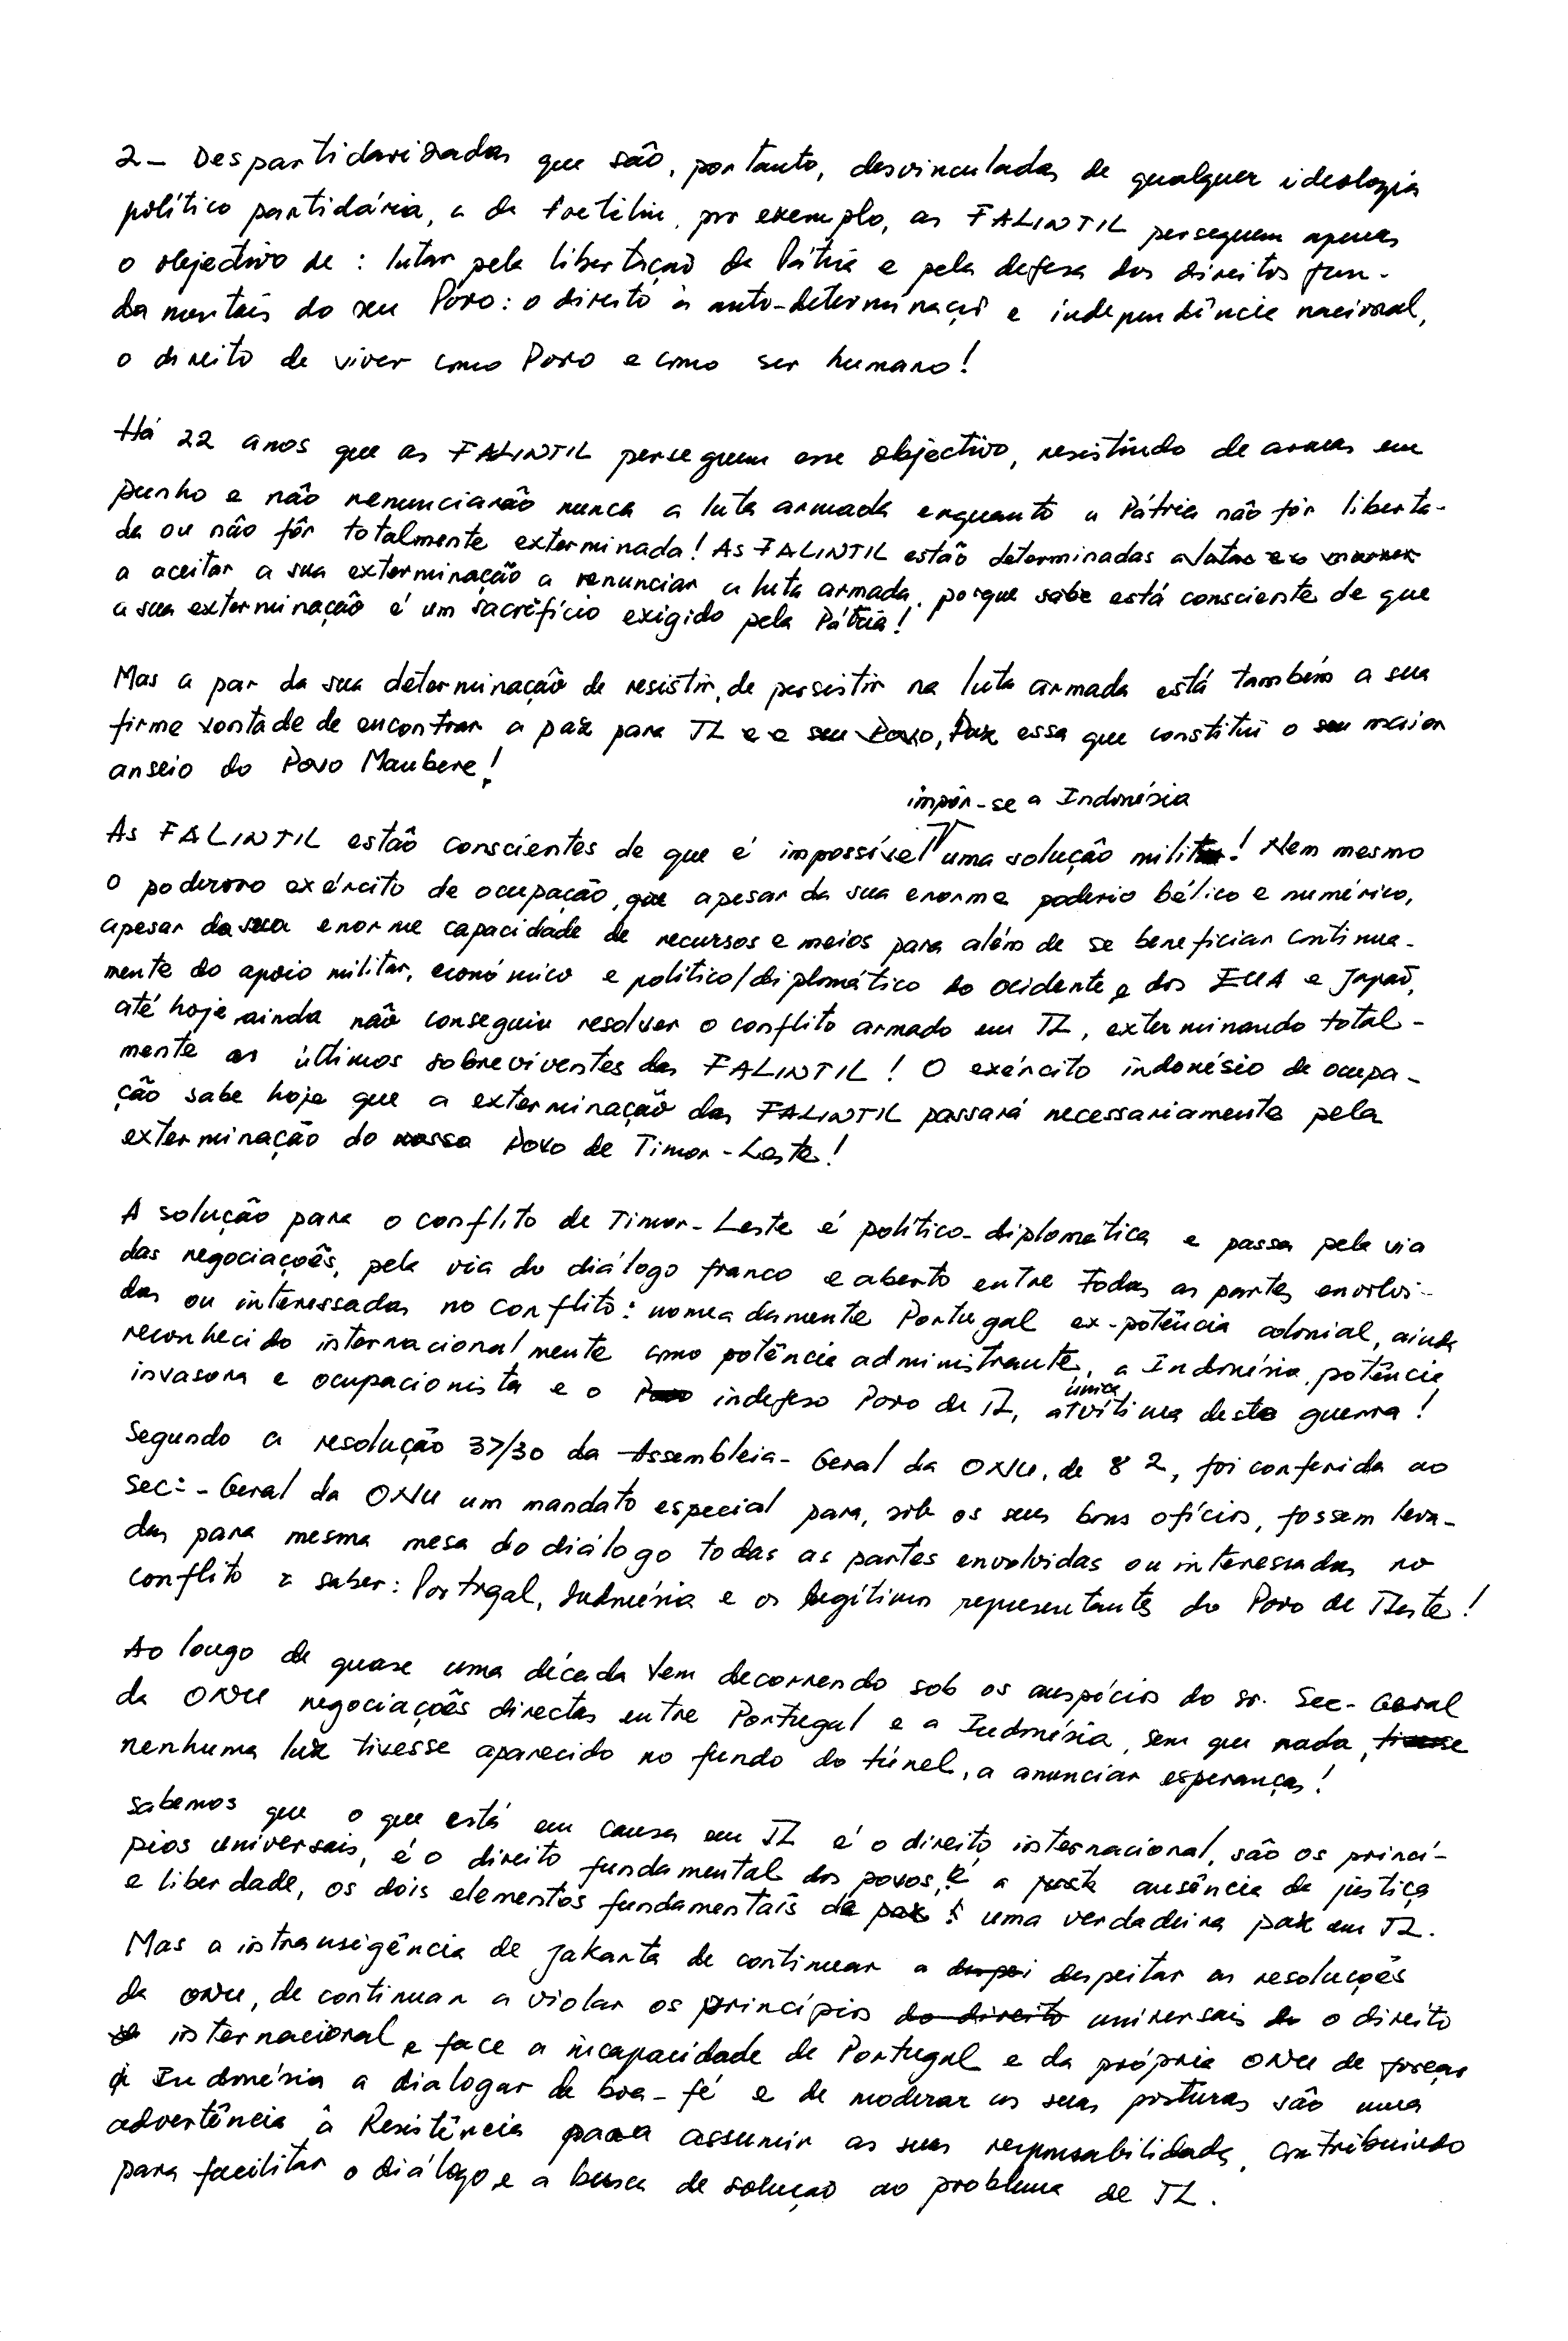 2- Despartidarizadas que são, portanto, desvinculadas de qualquer ideologia
político partidária, a da Fretilin, por exemplo, as FALINTIL perseguem apenas
o objectivo de: lutar pela libertação da Pátria e pela defesa dos direitos fun-
damentais do seu Povo: o direito à auto-determinação e independência nacional,
o direito de viver como Povo e como ser humano!
Há 22 anos que as FALINTIL perseguem esse objectivo, resistindo de armas em
punho e não renunciarão nunca a luta armada enquanto a Pátria não fôr liberta-
da ou não fôr totalmente exterminada! As FALINTIL estão determinadas
a aceitar a sua exterminação a renunciar a luta armada, porque sabe está consciente de que
a sua exterminação é um sacrifício exigido pela Pátria!
Mas a par da sua determinação de resistir, de persistir na luta armada está também a sua
firme vontade de encontrar a paz para TL e o seu Povo, Paz essa que constitui o seu maior
anseio do Povo Maubere!
impôr-se a Indonésia
As FALINTIL estão conscientes de que é impossível uma solução militar! Nem mesmo
o poderoso exército de ocupação, que apesar da sua enorme poderio bélico e numérico,
apesar da sua enorme capacidade de recursos e meios para além de se beneficiar contínua-
mente do apoio militar, económico e político/diplomático do ocidente e dos EUA e Japão,
até hoje ainda não conseguiu resolver o conflito armado em TL, exterminando total-
mente os últimos sobreviventes das FALINTIL! O exército indonésio de ocupa-
ção sabe hoje que a exterminação das FALINTIL passará necessariamente pela
exterminação do nosso Povo de Timor-Leste!
A solução para o conflito de Timor-Leste é político-diplomática e passa pela via
das negociações, pela via do diálogo franco e aberto entre todas as partes envolvi-
das ou interessadas no conflito: nomeadamente Portugal ex-potência colonial, ainda
reconhecido internacionalmente como potência administrante, a Indonésia, potência
invasora e ocupacionista e o Povo indefeso Povo de TL, a única vítima desta guerra!
Segundo a resolução 37/30 da Assembleia-Geral da ONU, de 82, foi conferida ao
Sec:-Geral da ONU um mandato especial para, sob os seus bons ofícios, fossem leva-
das para mesma mesa do diálogo todas as partes envolvidas ou interessadas no
conflito a saber: Portugal, Indonésia e os legítimos representantes do Povo de TLeste!
Ao longo de quase uma década vem decorrendo sob os auspícios do sr. Sec-Geral
da ONU negociações directas entre Portugal e a Indonésia, sem que nada, tivesse
nenhuma luz tivesse aparecido no fundo do túnel, a anunciar esperanças!
Sabemos que o que está em causa em TL é o direito internacional, são os princí-
pios universais, é o direito fundamental dos povos, É a ausência da justiça
e liberdade, os dois elementos fundamentais da paz uma verdadeira paz em TL.
Mas a intransigência de Jakarta de continuar a despeitar as resoluções
da ONU, de continuar a violar os princípios do direito universais do o direito
internacional e face a incapacidade de Portugal e da própria ONU de forçar
a Indonésia a dialogar de boa-fé e de moderar as suas posturas são uma
advertência à Resistência para assumir as suas responsabilidades, contribuindo
para facilitar o diálogo e a busca de solução ao problema de TL.